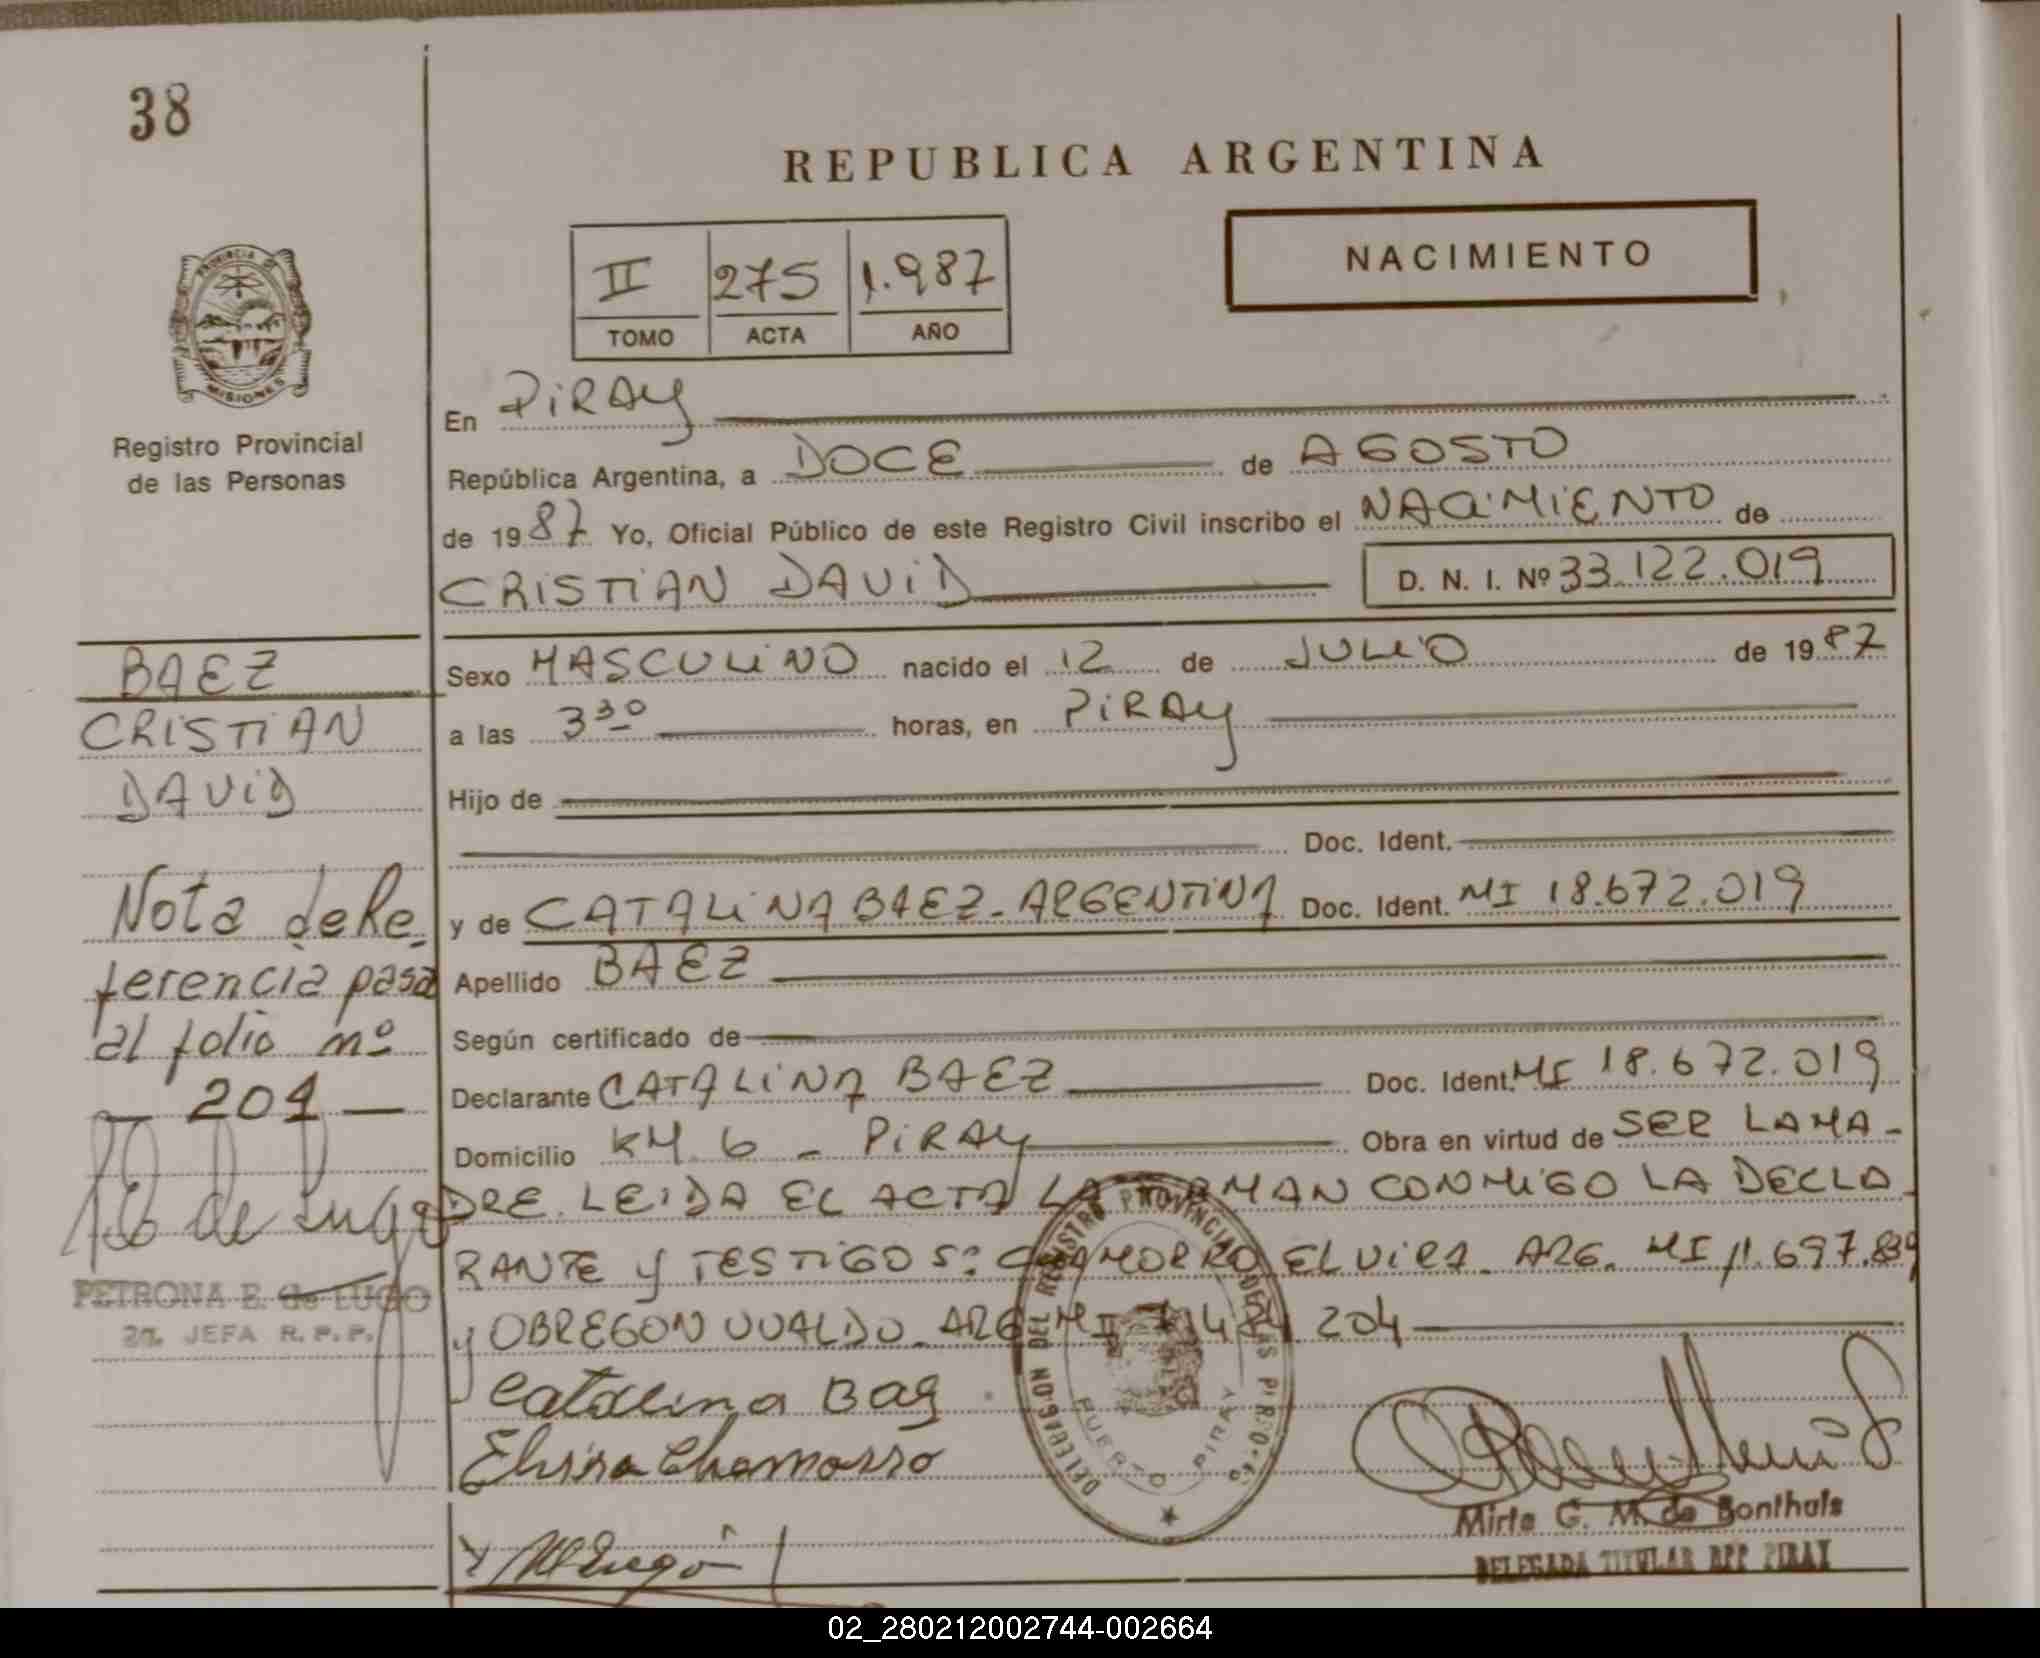 38
REPUBLICA ARGENTINA
NACIMIENTO
II 275 1.987
TOMO ACTA AÑO
PROVINCIA DE
MISIONES
Registro Provincial
de las Personas
En PIRAY
República Argentina, a DOCE de AGOSTO
de 1987 Yo, Oficial Público de este Registro Civil inscribo el NACIMIENTO de
CRISTIAN DAVID D. N. I. Nº 33.122.019
BAEZ
CRISTIAN
DAVID
Nota de Re-
ferencia pasa
al folio nº
- 201 -
PETRONA E. de LUGO
JEFA R. P. P.
Sexo MASCULINO nacido el 12 de JULIO de 1987
a las 3 30 horas, en PIRAY
Hijo de
Doc. Ident.
y de CATALINA BAEZ- ARGENTINA Doc. Ident. MI 18.672.019
Apellido BAEZ
Según certificado de
Declarante CATALINA BAEZ Doc. Ident. MI 18.672.019
Domicilio KM 6 - PIRAY Obra en virtud de SER LA MA-
DRE. LEIDA EL ACTA LA FIRMAN CONMIGO LA DECLA-
RANTE Y TESTIGOS: CHAMORRO ELVIRA. ARG. MI
y OBREGON UVALDO. ARG MI 204
Catalina Baez
Elvira Chamorro
DELEGACION DEL REGISTRO PROVINCIAL DE LAS PERSO
PUERTO PIRAY
Mirta G. M. de Bonthuis
DELEGADA TITULAR RPP PIRAY
02_280212002744-002664